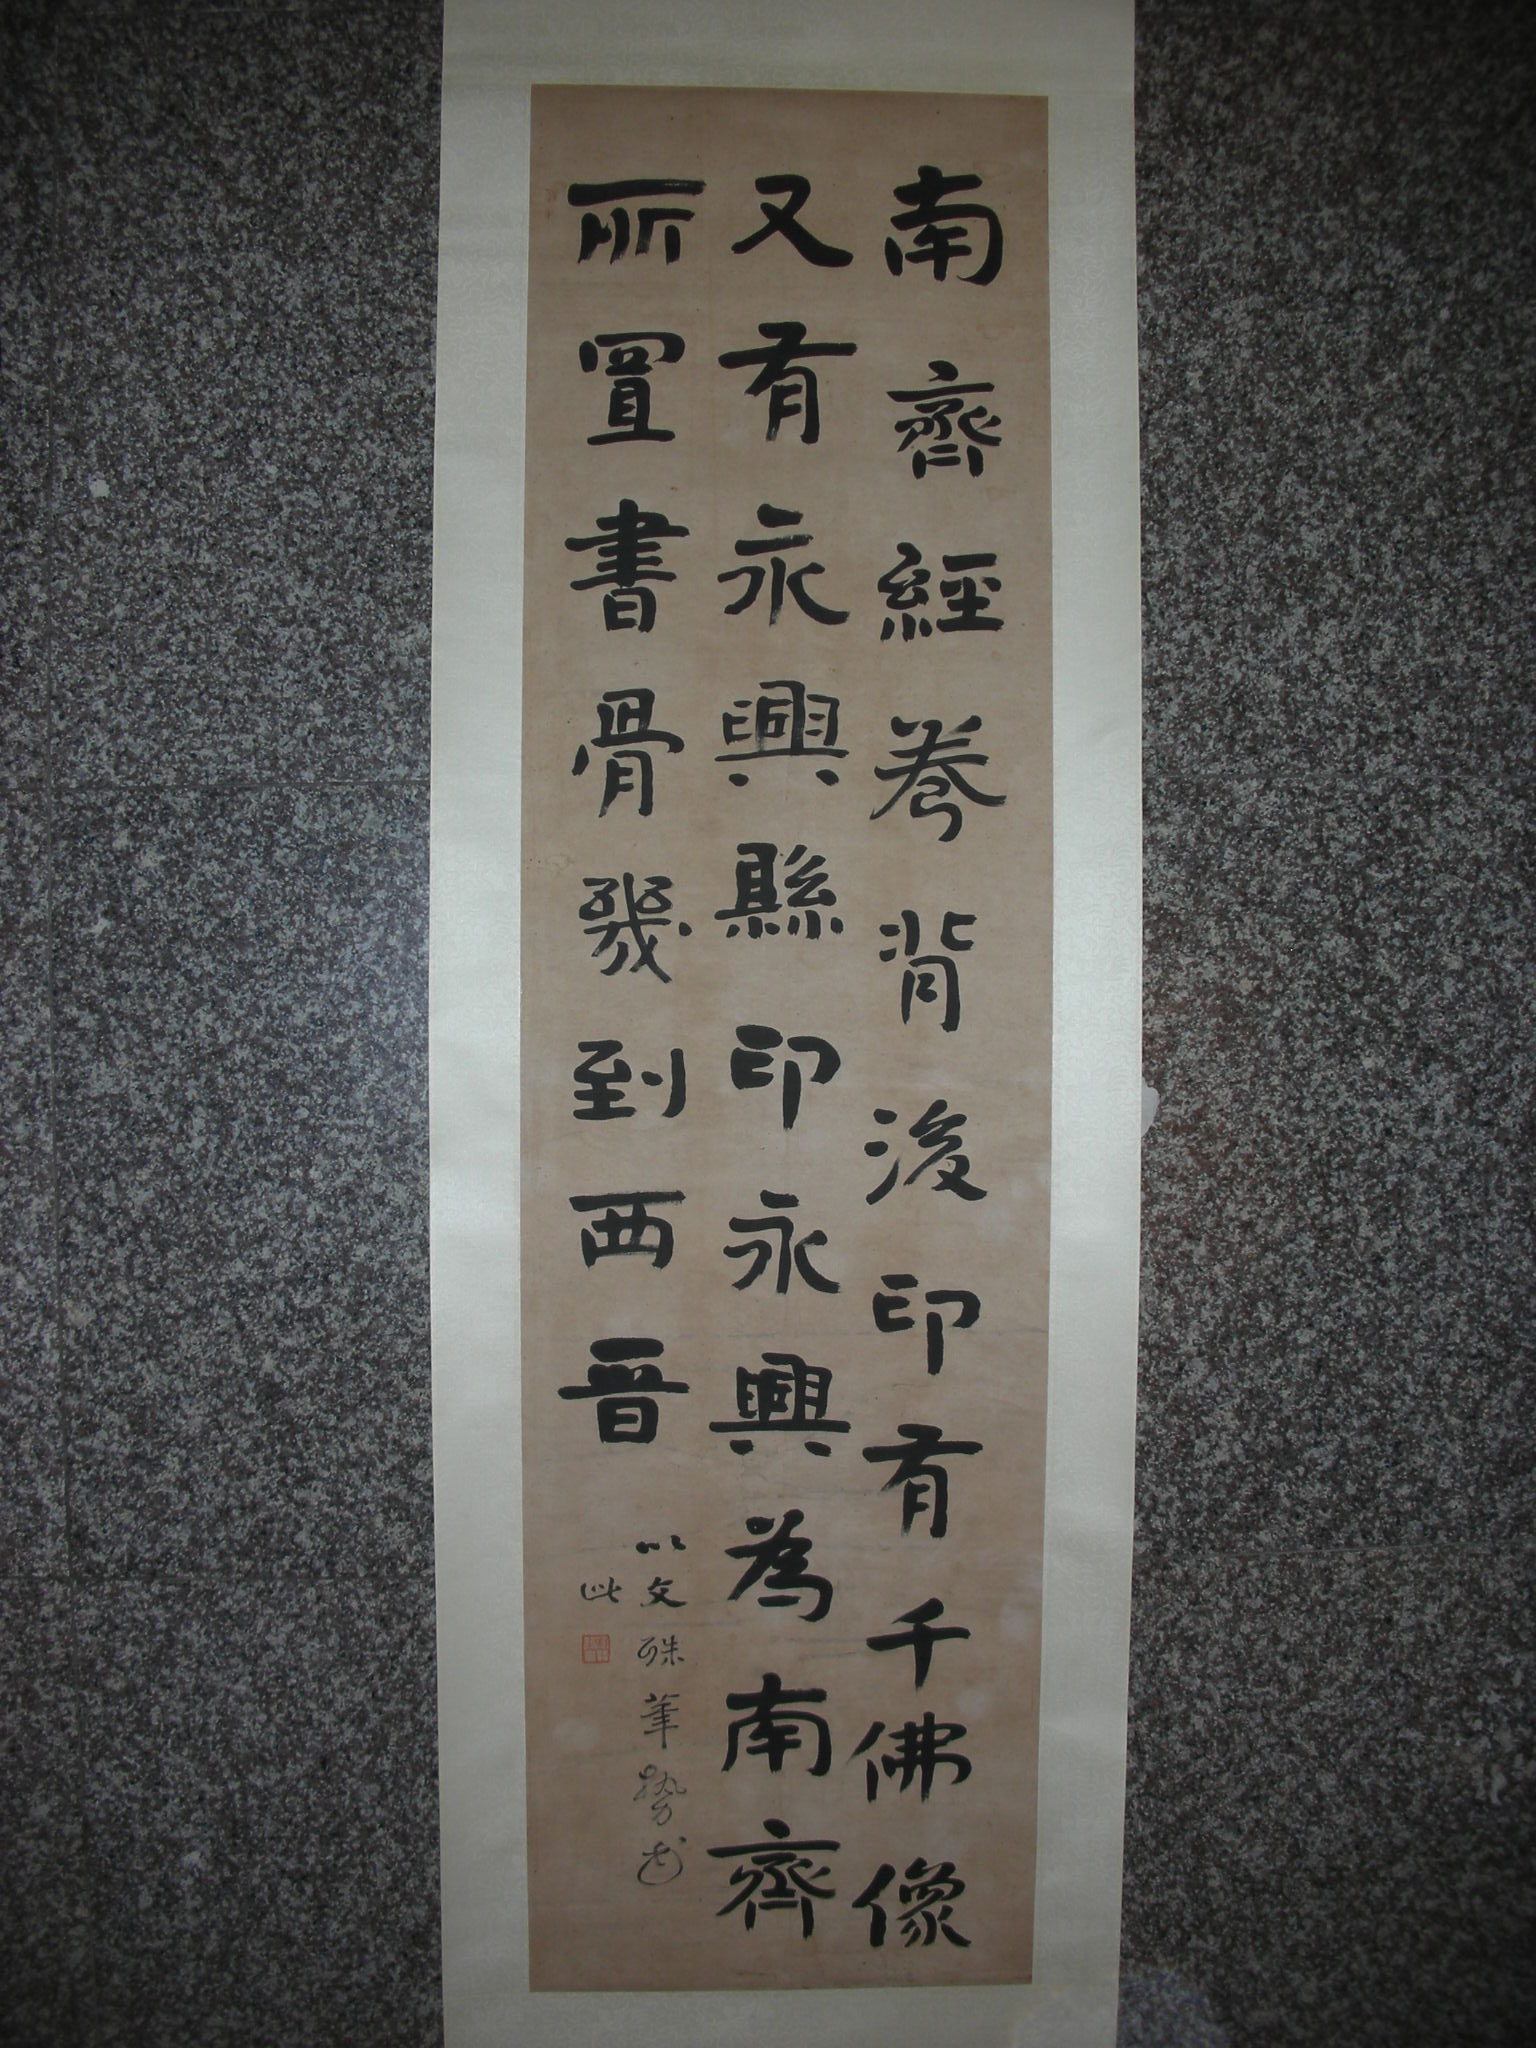 南齊經卷背後印有千佛像
又有永興縣印永興為南齊
所置書骨幾到西晉
以文殊筆勢書
此